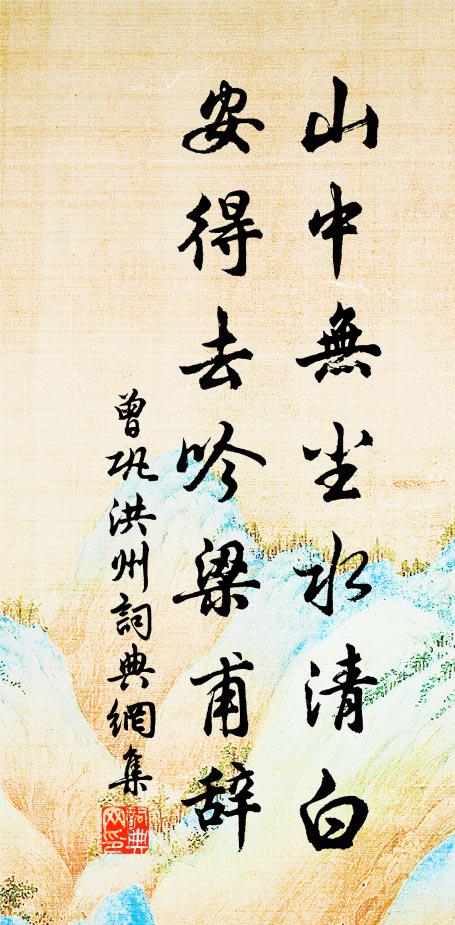 山中無尘水清白
安得去吟梁甫辞
曾巩洪州詞典網集
詞典网印